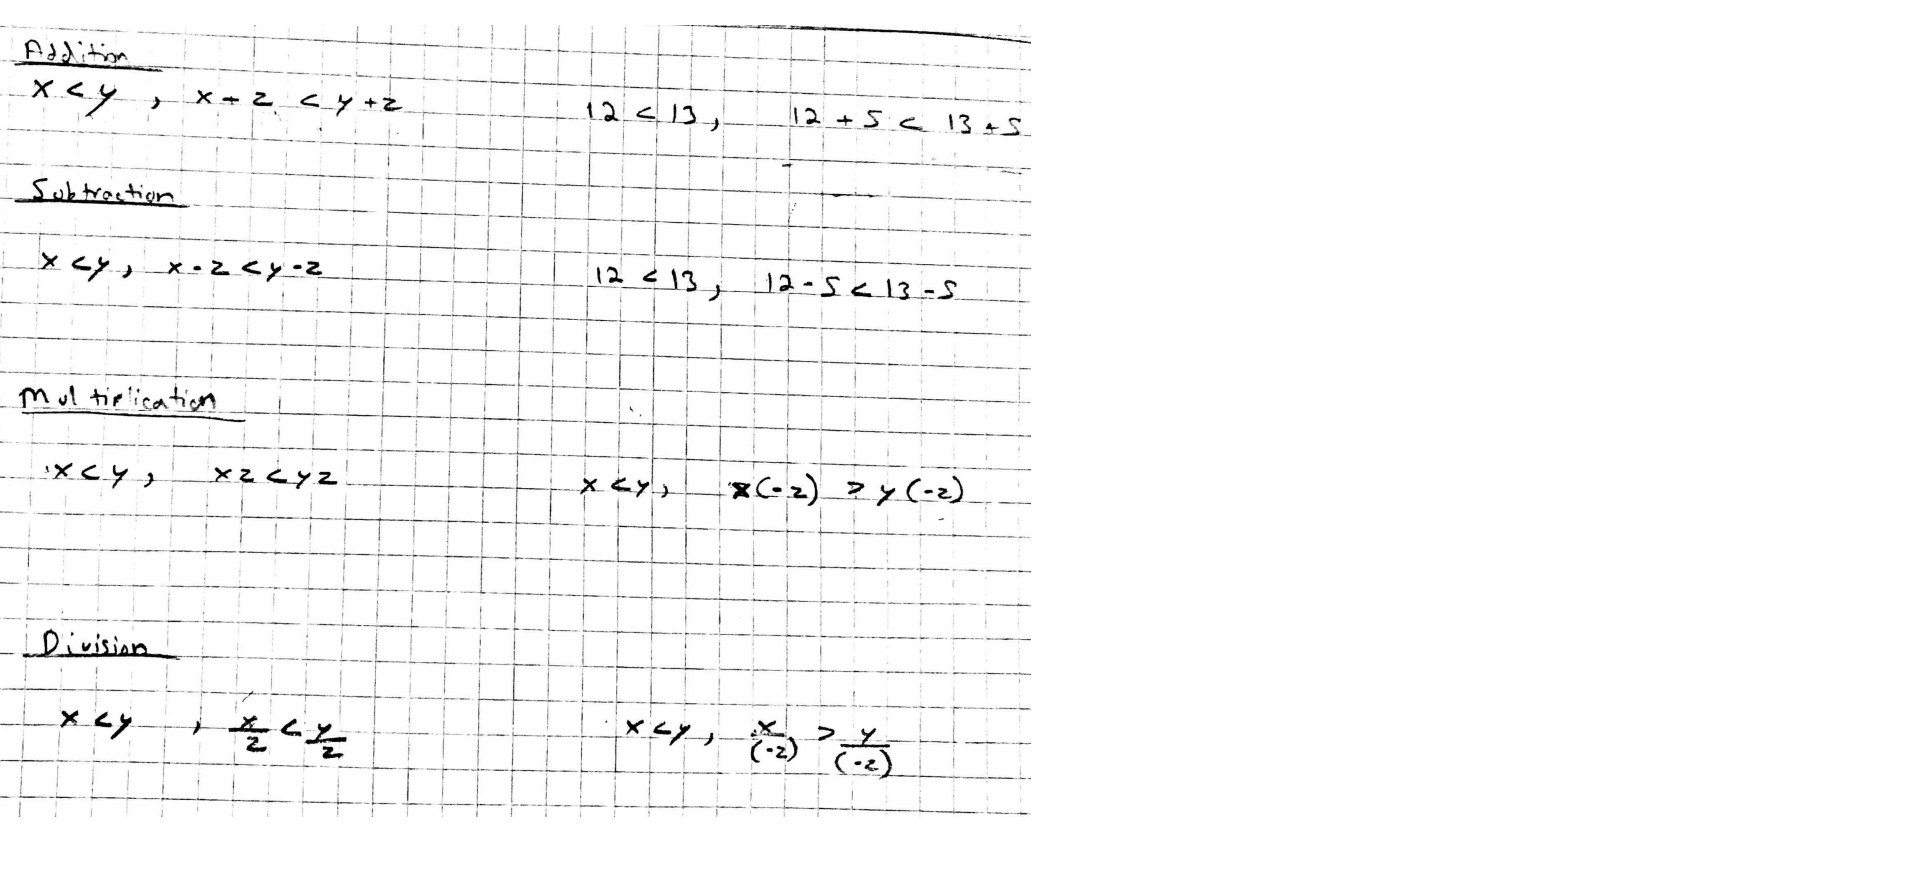 Addition
x < y , x + z < y + z 12 < 13, 12 + 5 < 13 + 5
Subtraction
x < y, x - z < y - z 12 < 13, 12 - 5 < 13 - 5
Multiplication
x < y, xz < yz x < y, x(-z) > y(-z)
Division
x < y , x/z < y/z x < y, x/(-z) > y/(-z)